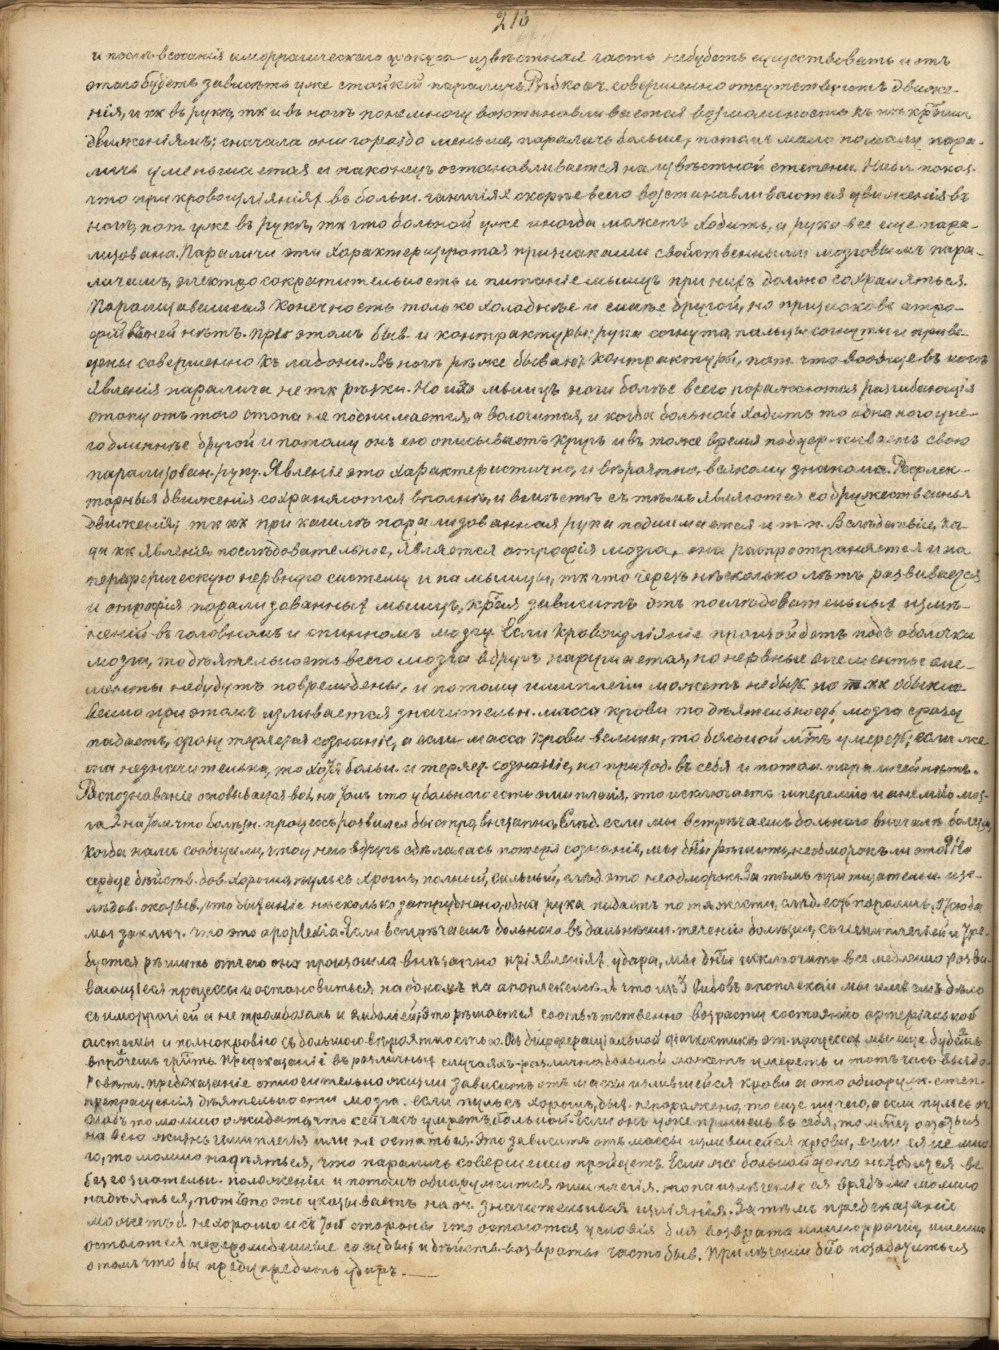 216
и после всосанія иморрагическаго фокуса извѣстная часть небудетъ существовать и отъ
этого будетъ зависѣть уже стойкій параличъ. Рѣдко ч. совершенно отсутствуютъ движе-
нія, и кк въ рукѣ, тк и въ ногѣ понемногу возстановливается возможность къ
движеніямъ; сначала они гораздо меньше, параличъ больше, потомъ мало по малу пара-
личъ уменьшается и наконецъ останавливается на извѣстной степени.
что при кровоизліяніях въ больш. гангліях скорѣе всего возстанавливаются движенія въ
ногѣ, пот. уже въ рукѣ, тк что больной уже иногда можетъ ходить, а рука все еще пара-
лизована. Параличи эти характеризуются признаками свойственными мозговымъ пара-
личамъ, электросократительность и питаніе мышцъ при нихъ должно сохраняться.
Парализавшаяся конечность только холоднѣе и слабѣе другой, но признаковъ атро-
фіи въ ней нѣтъ. При этомъ быв. и контрактуры: рука согнута, пальцы согнуты и приве-
дены совершенно къ ладони. Въ ногѣ рѣже бывают контрактуры, пот. что вообще въ ногѣ
явленія паралича не тк рѣзки. Но изъ мышцъ ноги болѣе всего поражаются разгибающія
стопу отъ того стопа не поднимается, а волочится, и когда больной ходитъ то одна нога у не-
го длиннѣе другой и потому онъ ею описываетъ кругъ и въ тоже время поддерживаетъ свою
парализован. руку. Явленіе это характеристично, и вѣроятно, всякому знакомо. Рефлек-
торныя движенія сохраняются вполнѣ, и вмѣстѣ съ тѣмъ являются содружественныя
движенія; тк кк при кашлѣ парализованная рука поднимается и т. п. Вслѣдствіи,
кк явленіе послѣдовательное, является атрофія мозга, она распространяется и на
периферическую нервную систему и на мышцы, тк что черезъ нѣсколько лѣтъ развивается
и атрофія парализованных мышцъ, кᵒᵗᵒрая зависитъ отъ послѣдовательных измѣ-
неній въ головномъ и спинномъ мозгу. Если кровоизліяніе произойдетъ подъ оболочки
мозга, то дѣятельность всего мозга вдругъ нарушается, но нервные элементы эле-
менты небудутъ повреждены, и потому гемиплегіи можетъ не быть но т. кк обыкно-
венно при этомъ изливается значительн. масса крови то дѣятельность мозга сразу
падаетъ, сразу теряется сознаніе, а если масса крови велика, то больной умерет; если же
она незначительна, то хотя больн. и теряет сознаніе, но приход. въ себя и потом паралича нѣтъ.
Распознаваніе основывается на томъ что у больного есть гемиплегія, это исключаетъ гиперемію и анемію моз-
га, 2 на томъ что болѣзн. процессъ развился быстро, внезапно. Слѣд. если мы встрѣчаемъ больного въ началѣ болѣзни,
когда намъ сообщили, что у него вдругъ сдѣлалась потеря сознанія, мы рѣшить, не обморокъ ли это? Но
сердце дѣйств. хорошо, пульсъ хорош., полный, сильный, слѣд. это не обморокъ. За тѣмъ при тщательн. изс-
лѣдов. оказыв., что дыханіе нѣсколько затруднено, одна рука падаетъ по тяжести, слѣд. есть параличъ. Отсюда
мы заключ. что это apoplexia. Если встрѣчаемъ больного въ дальнѣйш. теченіи болѣзни, съ гемиплегіей и тре-
буется рѣшить отчего она произошла внезапно при явленіях удара, мы исключить все медленно разви-
вающіеся процессы и остановиться на апоплексіи. А что изъ 3 видовъ апоплексіи мы имѣемъ дѣло
съ иморрагіей а не тромбозомъ и эмболіей, это рѣшается соотвѣтственно возрасту состоянію артеріальной
системы и полнокровію съ большою вѣроятностью. Объ дифференціальной діагностикѣ эт. процессов мы еще будемъ
Предсказаніе въ различных случаяхъ различно больной можетъ умереть и
Предсказаніе относительно жизни зависитъ отъ массы излившейся крови а это обнаруж. степ.
прекращенія дѣятельности мозга. Если пульсъ хорошъ, дых. непоражено, то еще ничего, а если пульсъ
слабъ то можно ожидать, что сейчасъ умретъ больной. Если онъ уже пришелъ въ себя, то
на всю жизнь гемиплегія или не остаться. Это зависитъ отъ массы излившейся крови, если ея не мно-
го, то можно надѣяться, что параличъ совершенно пройдетъ. Если же больной долго находился въ
безсознательн. положеніи и потомъ обнаружится гемиплегія, то на излѣченіе ея врядъ ли можно
надѣяться, пот. что это указываетъ на оч. значительныя изліянія. За тѣмъ предсказаніе
можетъ б. нехорошо и съ той стороны что остаются условія для возврата иморрагіи, именно
остаются перерожденные сосуды, и дѣйств. возвраты часто быв. При лѣченіи позаботиться
о томъ что бы предупредить ударъ.